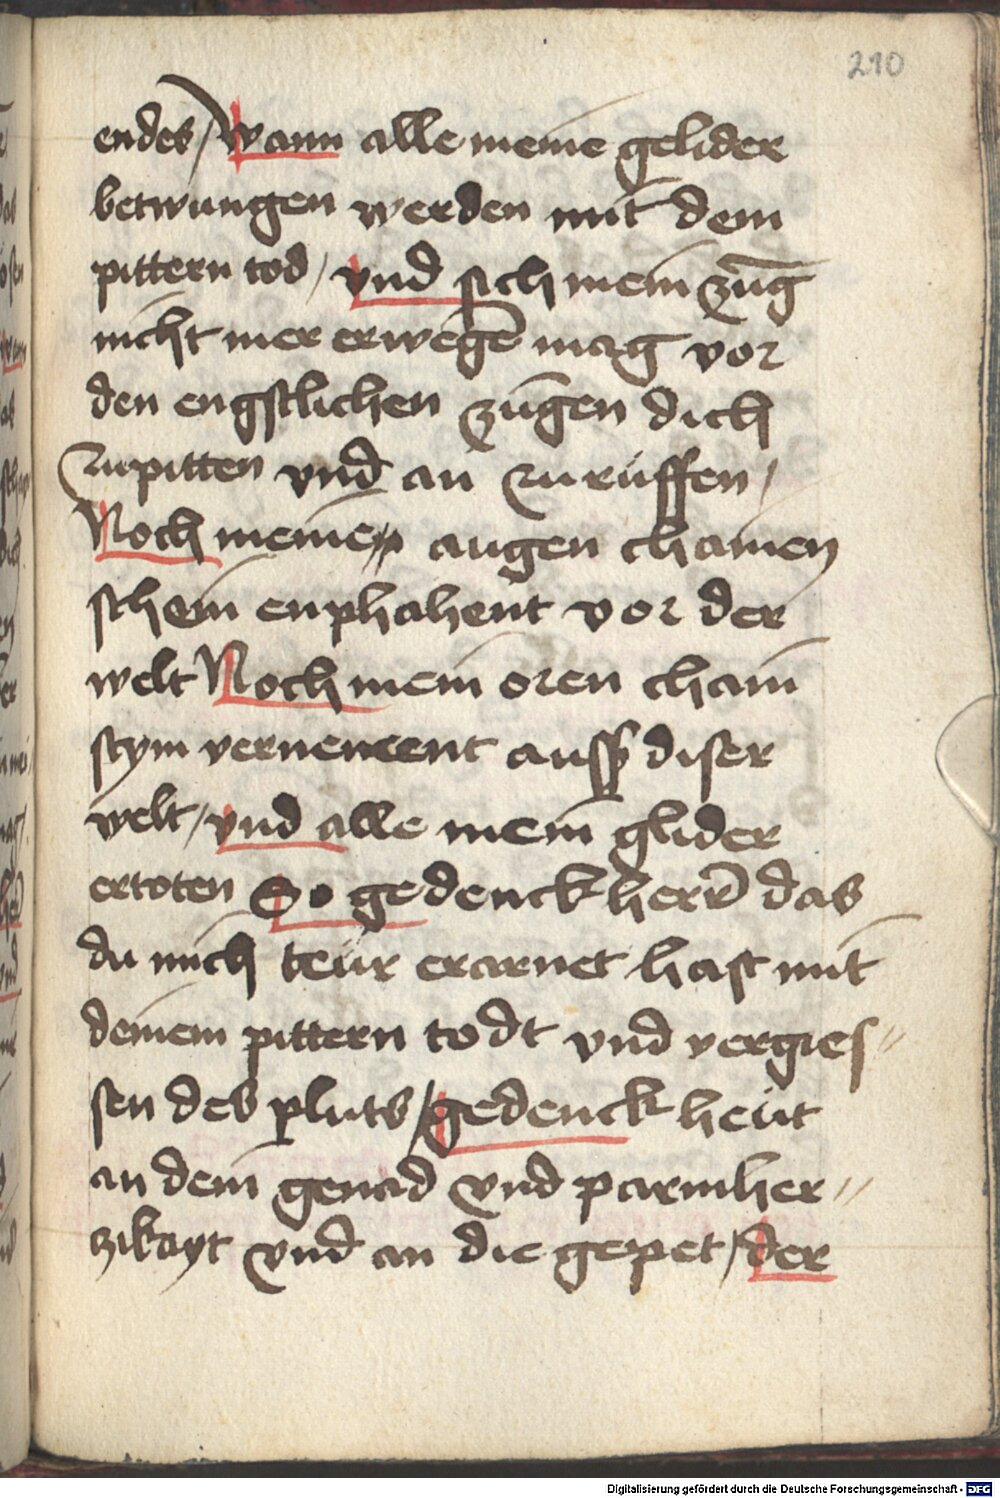 210
endes / wann alle meine gelider
betwungen werden mit dem
pittern tod / vnd sich mein zūg
nicht mer erwegē mag vor
den engstlichen zūgen dich
zupitten vnd an zu rüffen /
Noch meine augen chainen
schein enphahent vor der
welt Noch mein oren chain
stym vernement auss diser
welt / vnd alle mein glider
ertoten So gedenck herr das
du mich teür erarnet hast mit
deinem pittern todt vnd vergies//
sen des pluts / gedenck heüt
an dein genad vnd parmher//
zikayt vnd an die gepet / der
Digitalisierung gefördert durch die Deutsche Forschungsgemeinschaft - DFG